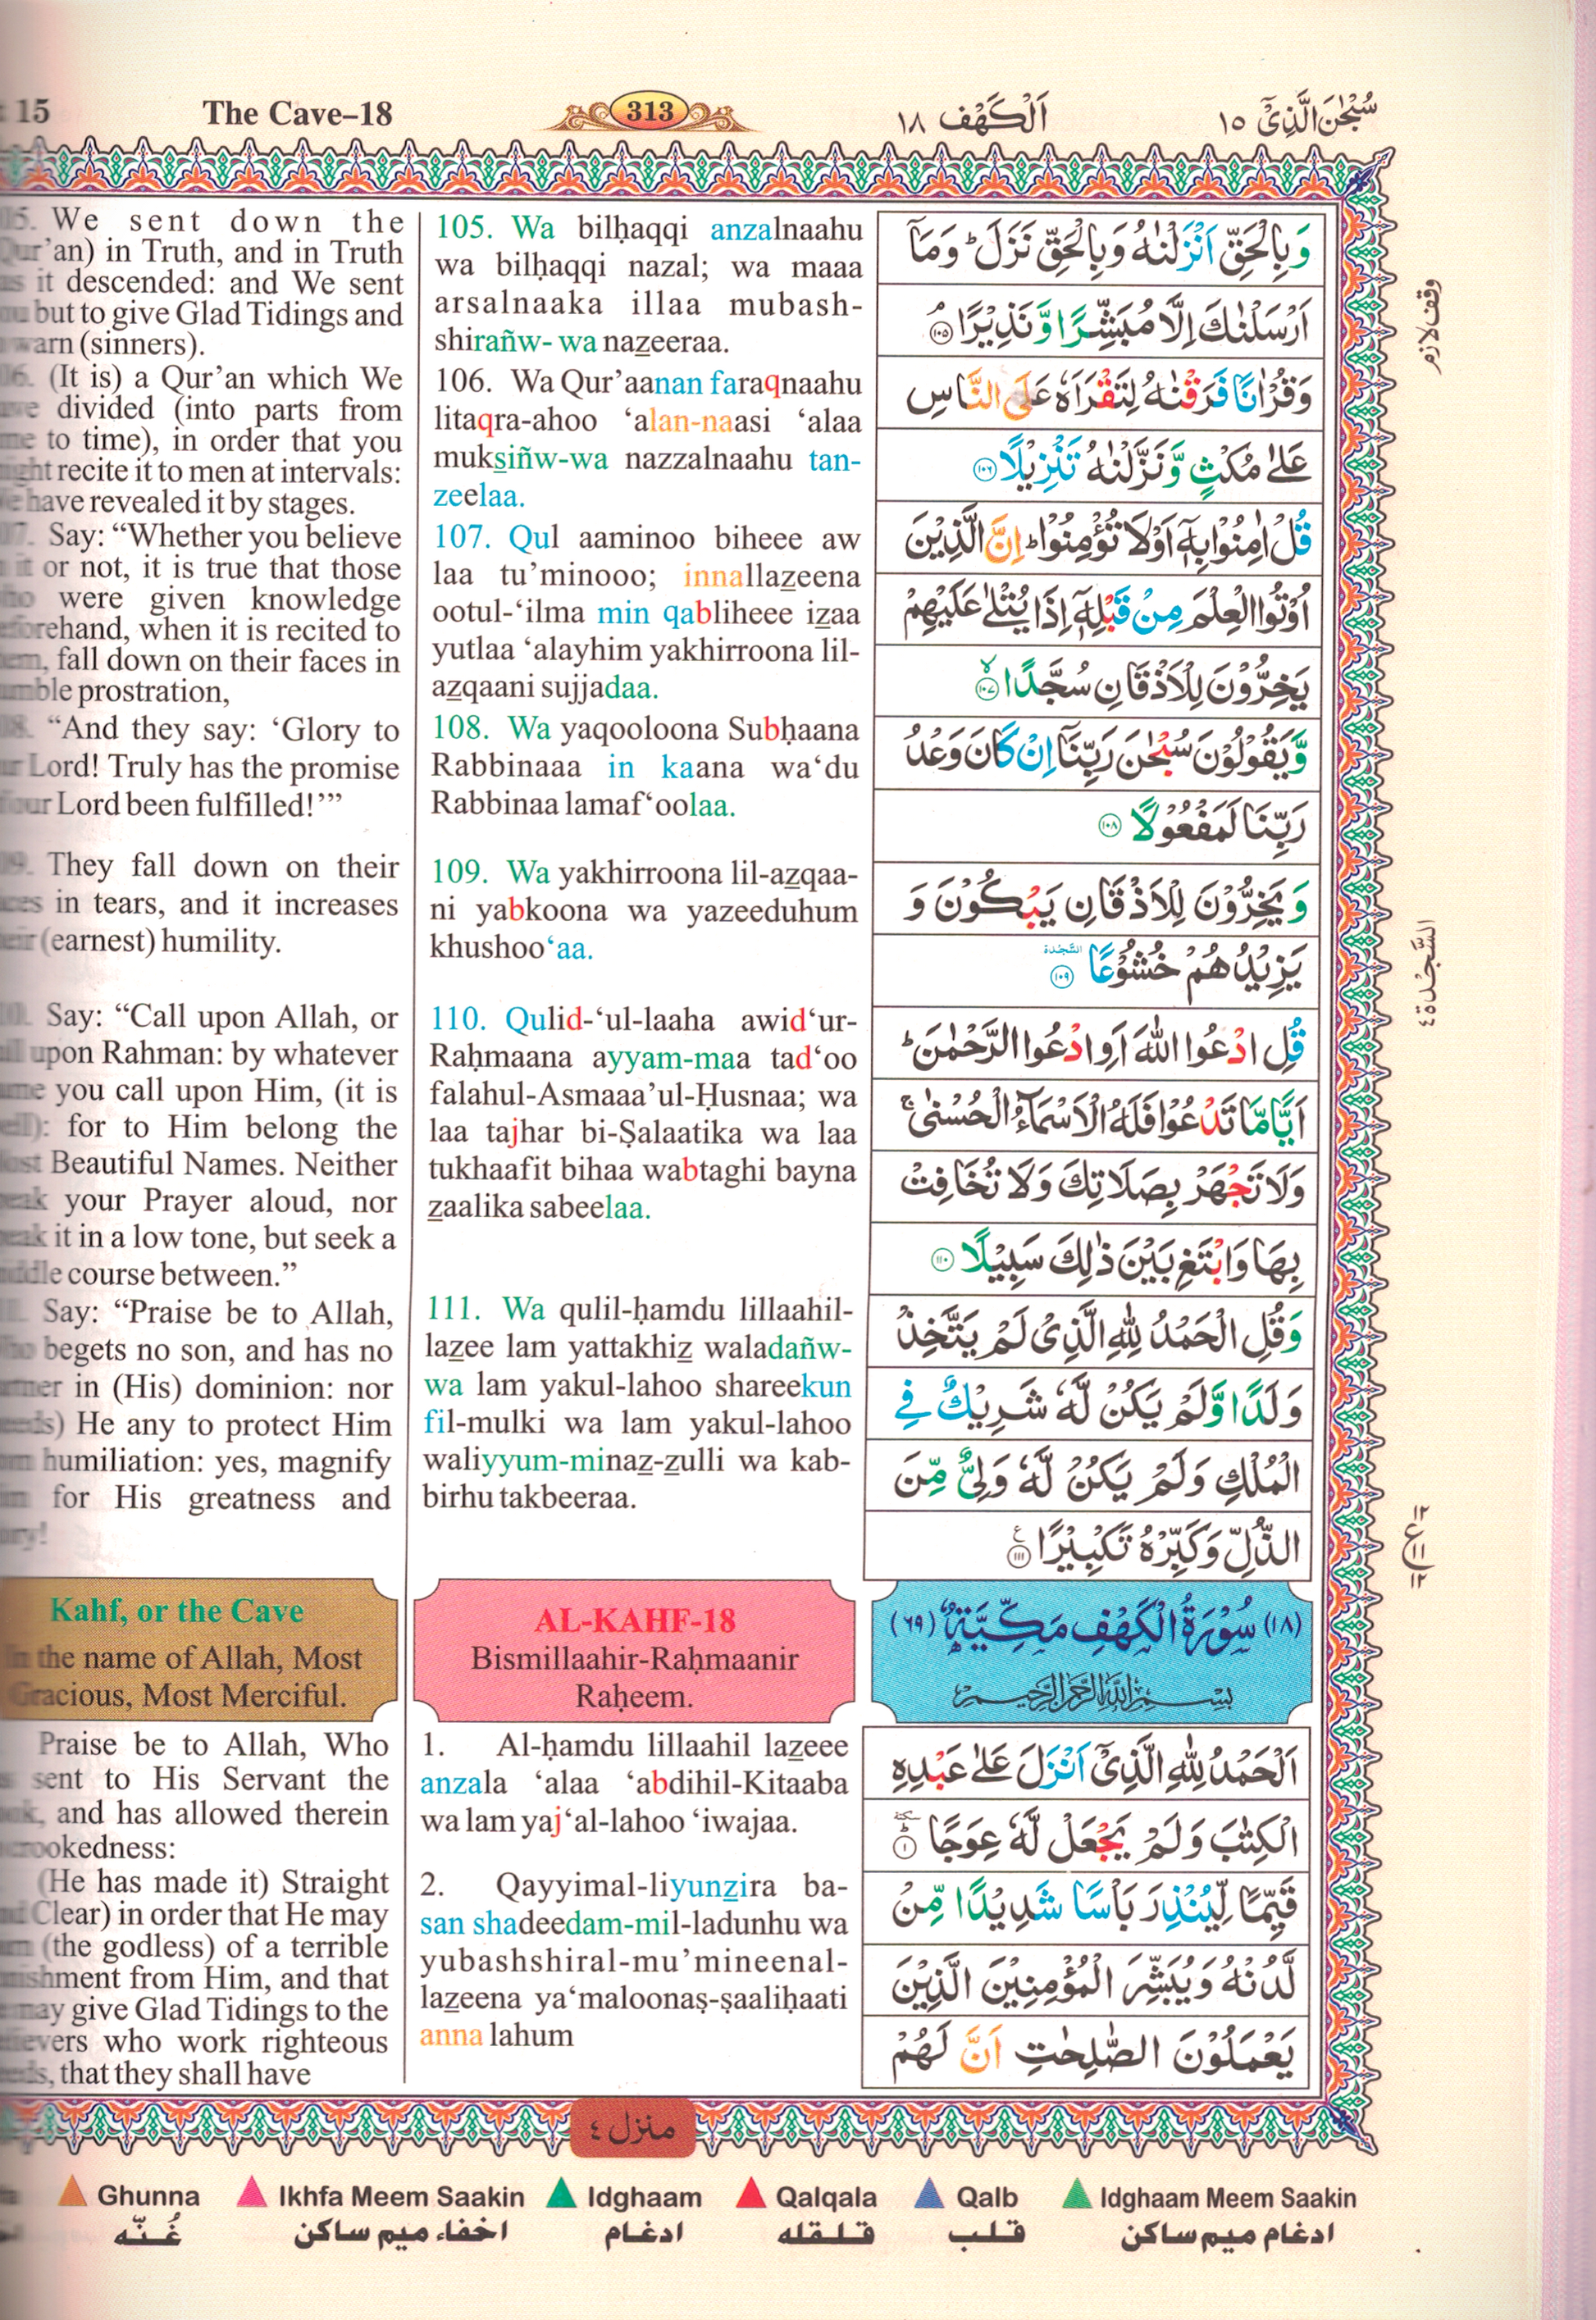 15 The Cave–18 313 اَلْكَهْف ١٨ سُبْحٰنَ الَّذِىْٓ ١٥
We sent down the
Qur’an) in Truth, and in Truth
it descended: and We sent
but to give Glad Tidings and
warn (sinners).
(It is) a Qur’an which We
divided (into parts from
to time), in order that you
recite it to men at intervals:
have revealed it by stages.
Say: “Whether you believe
it or not, it is true that those
were given knowledge
beforehand, when it is recited to
them, fall down on their faces in
humble prostration,
“And they say: ‘Glory to
Lord! Truly has the promise
our Lord been fulfilled!’”
They fall down on their
in tears, and it increases
(earnest) humility.
Say: “Call upon Allah, or
upon Rahman: by whatever
you call upon Him, (it is
for to Him belong the
Beautiful Names. Neither
your Prayer aloud, nor
it in a low tone, but seek a
course between.”
Say: “Praise be to Allah,
begets no son, and has no
in (His) dominion: nor
He any to protect Him
humiliation: yes, magnify
for His greatness and
Kahf, or the Cave
In the name of Allah, Most
Gracious, Most Merciful.
Praise be to Allah, Who
sent to His Servant the
and has allowed therein
crookedness:
(He has made it) Straight
Clear) in order that He may
(the godless) of a terrible
from Him, and that
may give Glad Tidings to the
who work righteous
that they shall have
105. Wa bilḥaqqi anzalnaahu
wa bilḥaqqi nazal; wa maaa
arsalnaaka illaa mubash-
shirañw- wa nazeeraa.
106. Wa Qur’aanan faraqnaahu
litaqra-ahoo ‘alan-naasi ‘alaa
muksiñw-wa nazzalnaahu tan-
zeelaa.
107. Qul aaminoo biheee aw
laa tu’minooo; innallazeena
ootul-‘ilma min qabliheee izaa
yutlaa ‘alayhim yakhirroona lil-
azqaani sujjadaa.
108. Wa yaqooloona Subḥaana
Rabbinaaa in kaana wa‘du
Rabbinaa lamaf‘oolaa.
109. Wa yakhirroona lil-azqaa-
ni yabkoona wa yazeeduhum
khushoo‘aa.
110. Qulid-‘ul-laaha awid‘ur-
Raḥmaana ayyam-maa tad‘oo
falahul-Asmaaa’ul-Ḥusnaa; wa
laa tajhar bi-Ṣalaatika wa laa
tukhaafit bihaa wabtaghi bayna
zaalika sabeelaa.
111. Wa qulil-ḥamdu lillaahil-
lazee lam yattakhiz waladañw-
wa lam yakul-lahoo shareekun
fil-mulki wa lam yakul-lahoo
waliyyum-minaz-zulli wa kab-
birhu takbeeraa.
AL-KAHF-18
Bismillaahir-Raḥmaanir
Raḥeem.
1. Al-ḥamdu lillaahil lazeee
anzala ‘alaa ‘abdihil-Kitaaba
wa lam yaj‘al-lahoo ‘iwajaa.
2. Qayyimal-liyunzira ba-
san shadeedam-mil-ladunhu wa
yubashshiral-mu’mineenal-
lazeena ya‘maloonaṣ-ṣaaliḥaati
anna lahum
وَبِالْحَقِّ اَنْزَلْنٰهُ وَبِالْحَقِّ نَزَلَ ؕ وَمَآ
اَرْسَلْنٰكَ اِلَّا مُبَشِّرًا وَّ نَذِيْرًا ۘ ۱۰۵
وَقُرْاٰنًا فَرَقْنٰهُ لِتَقْرَاَهٗ عَلَى النَّاسِ
عَلٰى مُكْثٍ وَّ نَزَّلْنٰهُ تَنْزِيْلًا ۱۰۶
قُلْ اٰمِنُوْا بِهٖٓ اَوْ لَا تُؤْمِنُوْا ؕ اِنَّ الَّذِيْنَ
اُوْتُوا الْعِلْمَ مِنْ قَبْلِهٖٓ اِذَا يُتْلٰى عَلَيْهِمْ
يَخِرُّوْنَ لِلْاَذْقَانِ سُجَّدًا ۙ ۱۰۷
وَّيَقُوْلُوْنَ سُبْحٰنَ رَبِّنَآ اِنْ كَانَ وَعْدُ
رَبِّنَا لَمَفْعُوْلًا ۱۰۸
وَ يَخِرُّوْنَ لِلْاَذْقَانِ يَبْكُوْنَ وَ
يَزِيْدُهُمْ خُشُوْعًا السَّجْدَة ۱۰۹
قُلِ ادْعُوا اللّٰهَ اَوِ ادْعُوا الرَّحْمٰنَ ؕ
اَيًّا مَّا تَدْعُوْا فَلَهُ الْاَسْمَآءُ الْحُسْنٰى ۚ
وَلَا تَجْهَرْ بِصَلَاتِكَ وَلَا تُخَافِتْ
بِهَا وَابْتَغِ بَيْنَ ذٰلِكَ سَبِيْلًا ۱۱۰
وَقُلِ الْحَمْدُ لِلّٰهِ الَّذِىْ لَمْ يَتَّخِذْ
وَلَدًا وَّلَمْ يَكُنْ لَّهٗ شَرِيْكٌ فِى
الْمُلْكِ وَلَمْ يَكُنْ لَّهٗ وَلِىٌّ مِّنَ
الذُّلِّ وَكَبِّرْهُ تَكْبِيْرًا ۱۱۱ ع
(١٨) سُوْرَةُ الْكَهْفِ مَكِّيَّةٌ (٦٩)
بِسْمِ اللّٰهِ الرَّحْمٰنِ الرَّحِيْمِ
اَلْحَمْدُ لِلّٰهِ الَّذِىْٓ اَنْزَلَ عَلٰى عَبْدِهِ
الْكِتٰبَ وَلَمْ يَجْعَلْ لَّهٗ عِوَجًا ؕ سكتة ۱
قَيِّمًا لِّيُنْذِرَ بَاْسًا شَدِيْدًا مِّنْ
لَّدُنْهُ وَيُبَشِّرَ الْمُؤْمِنِيْنَ الَّذِيْنَ
يَعْمَلُوْنَ الصّٰلِحٰتِ اَنَّ لَهُمْ
وقف لازم
السَّجْدَة ٤
منزل ٤
Ghunna Ikhfa Meem Saakin Idghaam Qalqala Qalb Idghaam Meem Saakin
غُنّه اخفاء ميم ساكن ادغام قلقله قلب ادغام ميم ساكن